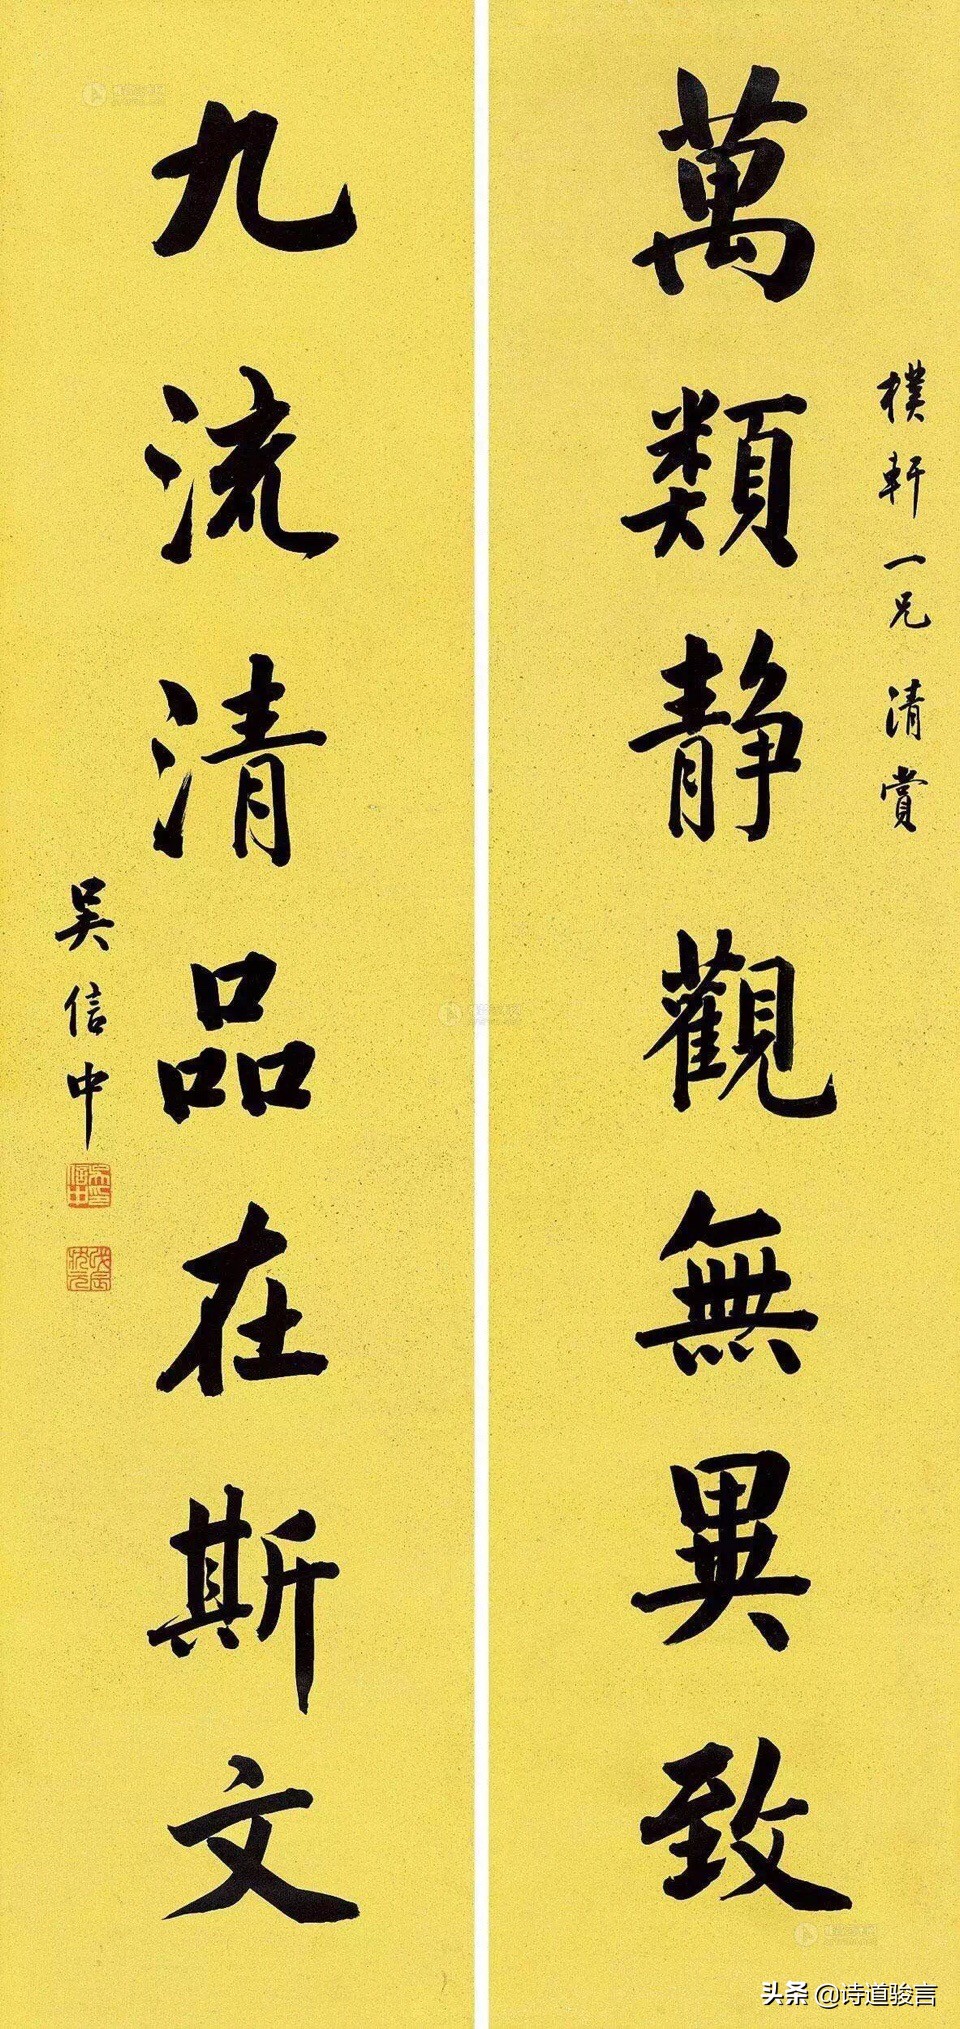 樸軒一兄清賞
萬類静觀無異致
九流清品在斯文
吴信中
头条 @诗道骏言